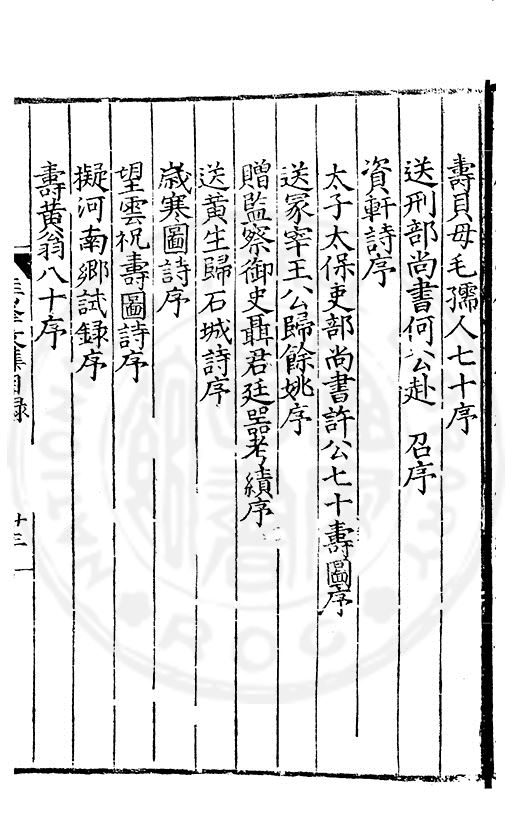 壽貝母毛孺人七十序
送刑部尚書何公赴　召序
資軒詩序
太子太保吏部尚書許公七十壽圖序
送冢宰王公歸餘姚序
贈監察御史聶君廷器考績序
送黃生歸石城詩序
歲寒圖詩序
望雲祝壽圖詩序
擬河南鄉試録序
壽黃翁八十序
文集目録
十三